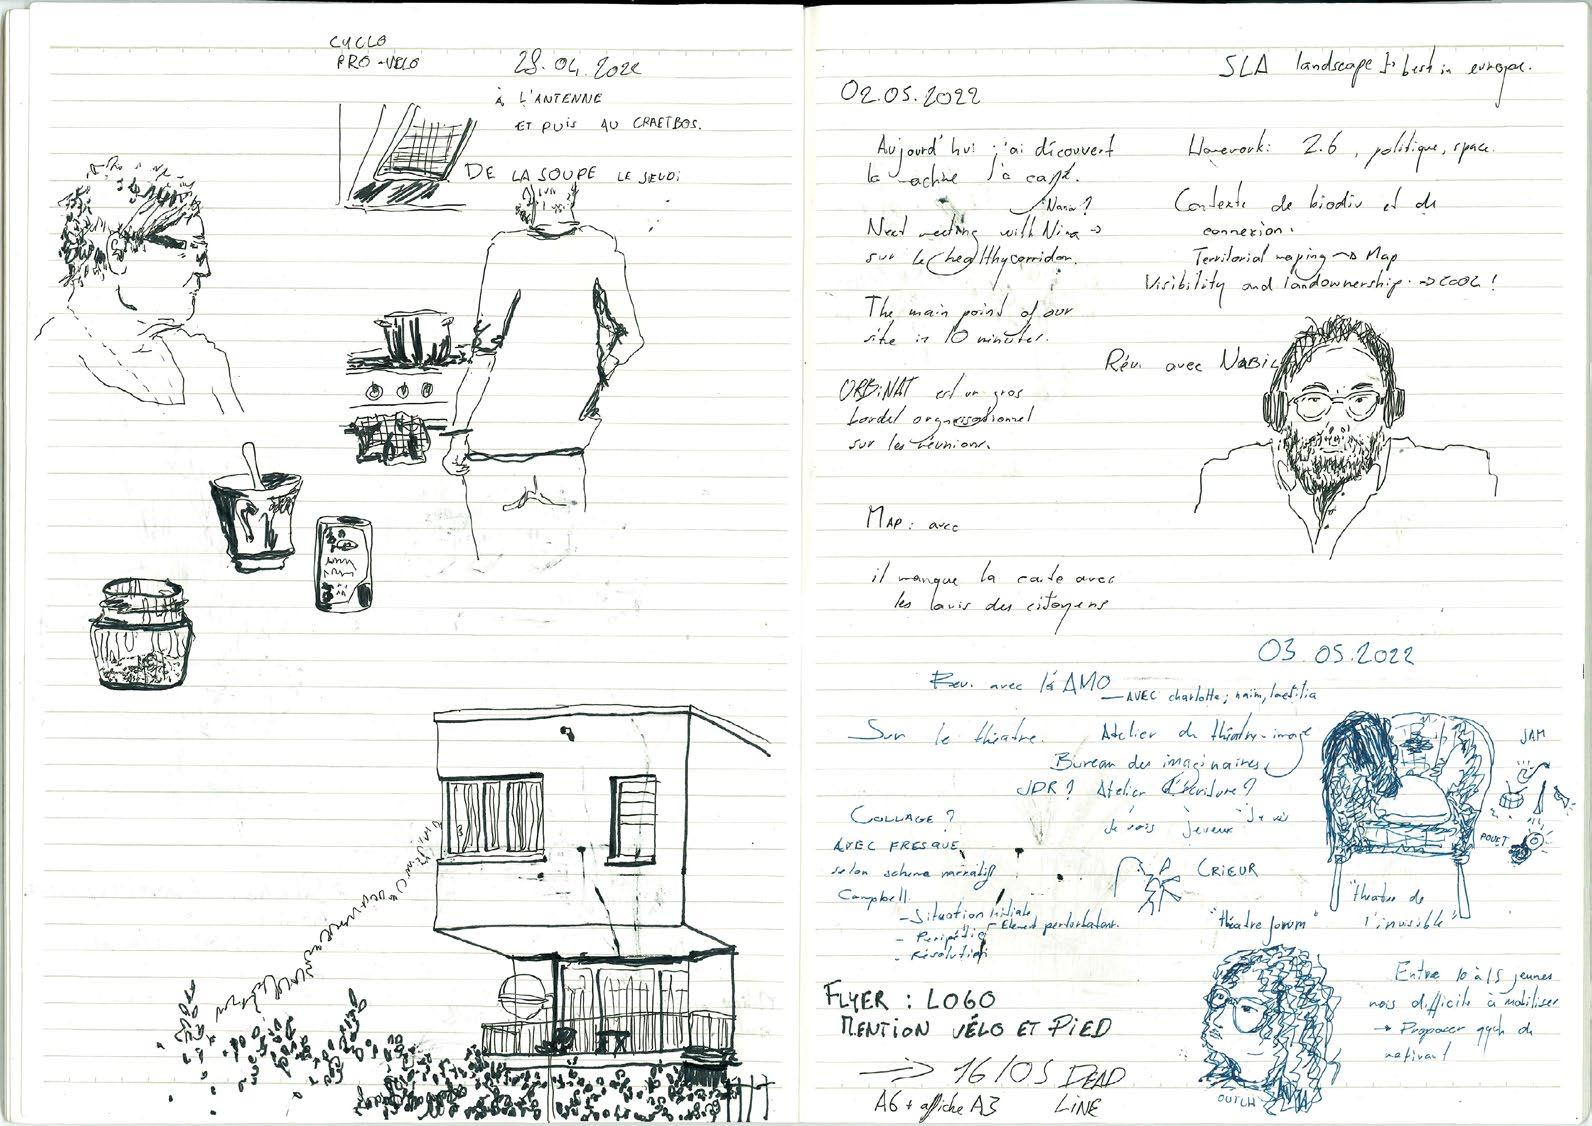 CYCLO
PRO-VELO
28.04.2022
à L'ANTENNE
ET PUIS AU CRAETBOS.
DE LA SOUPE LE JEUDI
SLA landscape best in europe.
02.05.2022
Aujourd'hui j'ai découvert
la machine à café.
Nania?
Next meeting with Nina →
sur le healthycorridor.
The main point of our
site in 10 minutes.
ORBiNAT est un gros
bordel organisationnel
sur les réunions.
MAP: avec
il manque la carte avec
les lavis des citoyens
Homework: 2.6, politique, space.
Contexte de biodiv et de
connexion.
Territorial maping → Map
Visibility and landownership. → cool!
Réu. avec NABIL
03.05.2022
Réu. avec l'AMO
— AVEC charlotte, naim, laetitia
Sur le théatre. Atelier du théatre-image
Bureau des imaginaires
JDR? Atelier d'écriture?
COLLAGE?
AVEC FRESQUE
selon schéma narratif
Campbell
- Situation initiale
- Element perturbateur.
- Peripétie
- Résolution
Je vois Je veux Je vis
CRIEUR
"théatre forum"
"theatre de
l'invisible"
JAM
POUET
Entre 10 à 15 jeunes
mais difficile à mobiliser
→ Proposer qqch de
motivant
OUTCH
FLYER: LOGO
MENTION VÉLO ET PIED
→ 16/05 DEAD
LINE
A6 + affiche A3